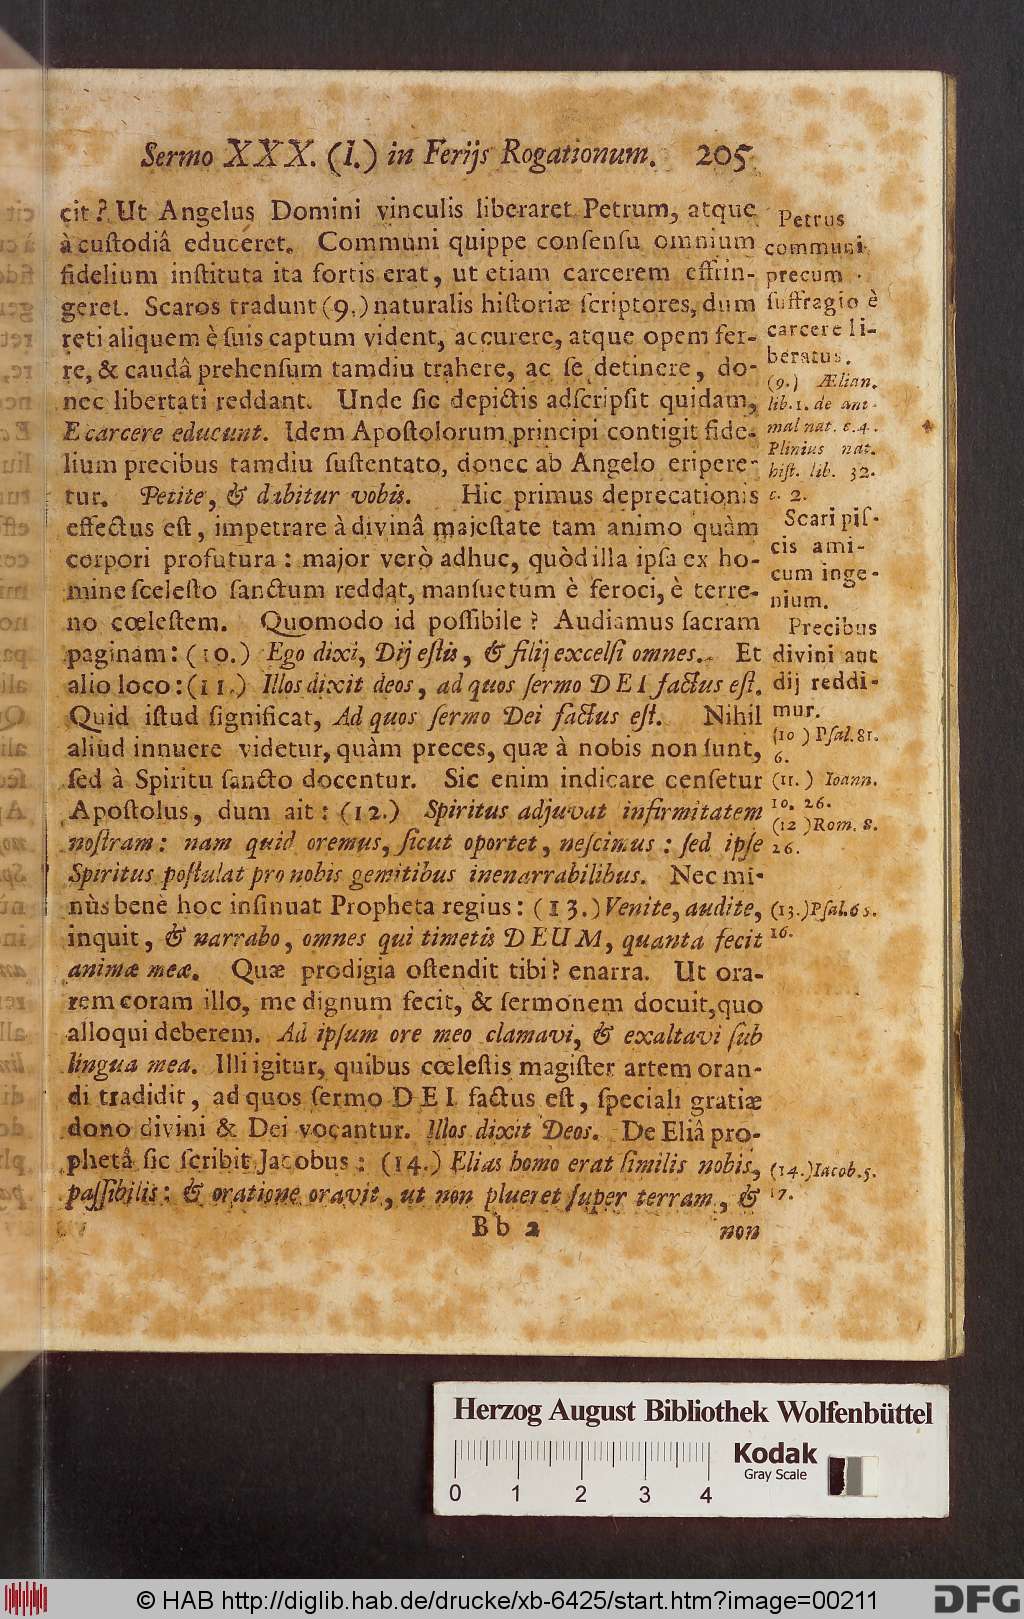 Sermo XXX. (I.) in Ferijs Rogationum. 205
cit? Ut Angelus Domini vinculis liberaret Petrum, atque
à custodiâ educeret. Communi quippe consensu omnium
fidelium instituta ita fortis erat, ut etiam carcerem effrin-
geret. Scaros tradunt (9.) naturalis historiæ scriptores, dum
reti aliquem è suis captum vident, accurere, atque opem fer-
re, & caudâ prehensum tamdiu trahere, ac se detinere, do-
nec libertati reddant. Unde sic depictis adscripsit quidam,
E carcere educunt. Idem Apostolorum principi contigit fide-
lium precibus tamdiu sustentato, donec ab Angelo eripere-
tur. Petite, & dabitur vobis. Hic primus deprecationis
effectus est, impetrare à divinâ majestate tam animo quàm
corpori profutura: major verò adhuc, quòd illa ipsa ex ho-
mine scelesto sanctum reddat, mansuetum è feroci, è terre-
no cœlestem. Quomodo id possibile? Audiamus sacram
paginam: (10.) Ego dixi, Dij estis, & filij excelsi omnes. Et
alio loco: (11.) Illos dixit deos, ad quos sermo DEI factus est.
Quid istud significat, Ad quos sermo Dei factus est. Nihil
aliud innuere videtur, quàm preces, quæ à nobis non sunt,
sed à Spiritu sancto docentur. Sic enim indicare censetur
Apostolus, dum ait: (12.) Spiritus adjuvat infirmitatem
nostram: nam quid oremus, sicut oportet, nescimus: sed ipse
Spiritus postulat pro nobis gemitibus inenarrabilibus. Nec mi-
nùs benè hoc insinuat Propheta regius: (13.) Venite, audite,
inquit, & narrabo, omnes qui timetis DEUM, quanta fecit
animæ meæ. Quæ prodigia ostendit tibi? enarra. Ut ora-
rem coram illo, me dignum fecit, & sermonem docuit, quo
alloqui deberem. Ad ipsum ore meo clamavi, & exaltavi sub
lingua mea. Illi igitur, quibus cœlestis magister artem oran-
di tradidit, ad quos sermo DEI factus est, speciali gratiæ
dono divini & Dei vocantur. Illos dixit Deos. De Eliâ pro-
phetâ sic scribit Jacobus: (14.) Elias homo erat similis nobis,
passibilis: & oratione oravit, ut non plueret super terram, &
Bb 2 non
Petrus
communi
precum
suffragio è
carcere li-
beratus.
(9.) Ælian.
lib. 1. de ani-
mal nat. c. 4.
Plinius nat.
hist. lib. 32.
c. 2.
Scari pis-
cis ami-
cum inge-
nium.
Precibus
divini aut
dij reddi-
mur.
(10) Psal. 81.
6.
(11.) Ioann.
10. 26.
(12) Rom. 8.
26.
(13.) Psal. 65.
16.
(14.) Iacob. 5.
17.
Herzog August Bibliothek Wolfenbüttel
Kodak
Gray Scale
0 1 2 3 4
© HAB http://diglib.hab.de/drucke/xb-6425/start.htm?image=00211
DFG